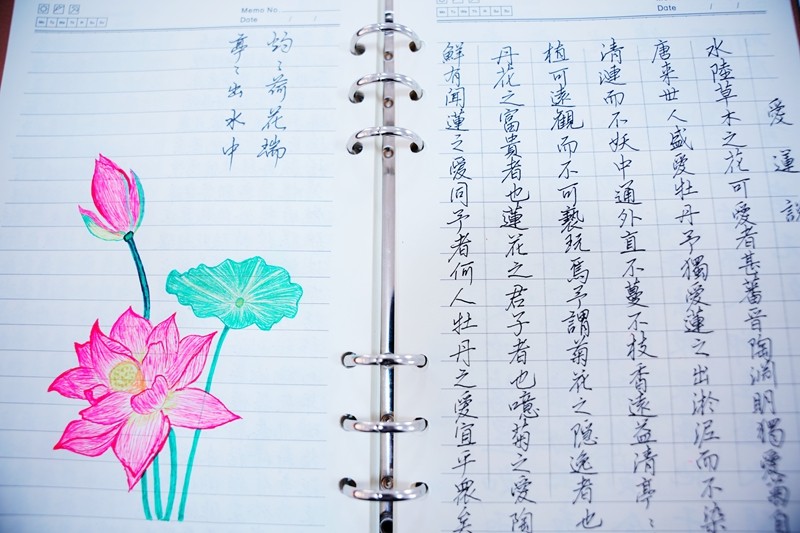 Memo No.
Mo Tu We Th Fr Sa Su
Date / /
灼〻荷花瑞
亭〻出水中
Memo No.
Mo Tu We Th Fr Sa Su
Date / /
愛蓮說
水陸草木之花可愛者甚蕃晉陶淵明獨愛菊自
唐来世人盛愛牡丹予獨愛蓮之出淤泥而不染
清漣而不妖中通外直不蔓不枝香遠益清亭〻
植可遠觀而不可褻玩焉予謂菊花之隱逸者也
丹花之富貴者也蓮花之君子者也噫菊之愛陶
鮮有聞蓮之愛同予者何人牡丹之愛宜乎眾矣